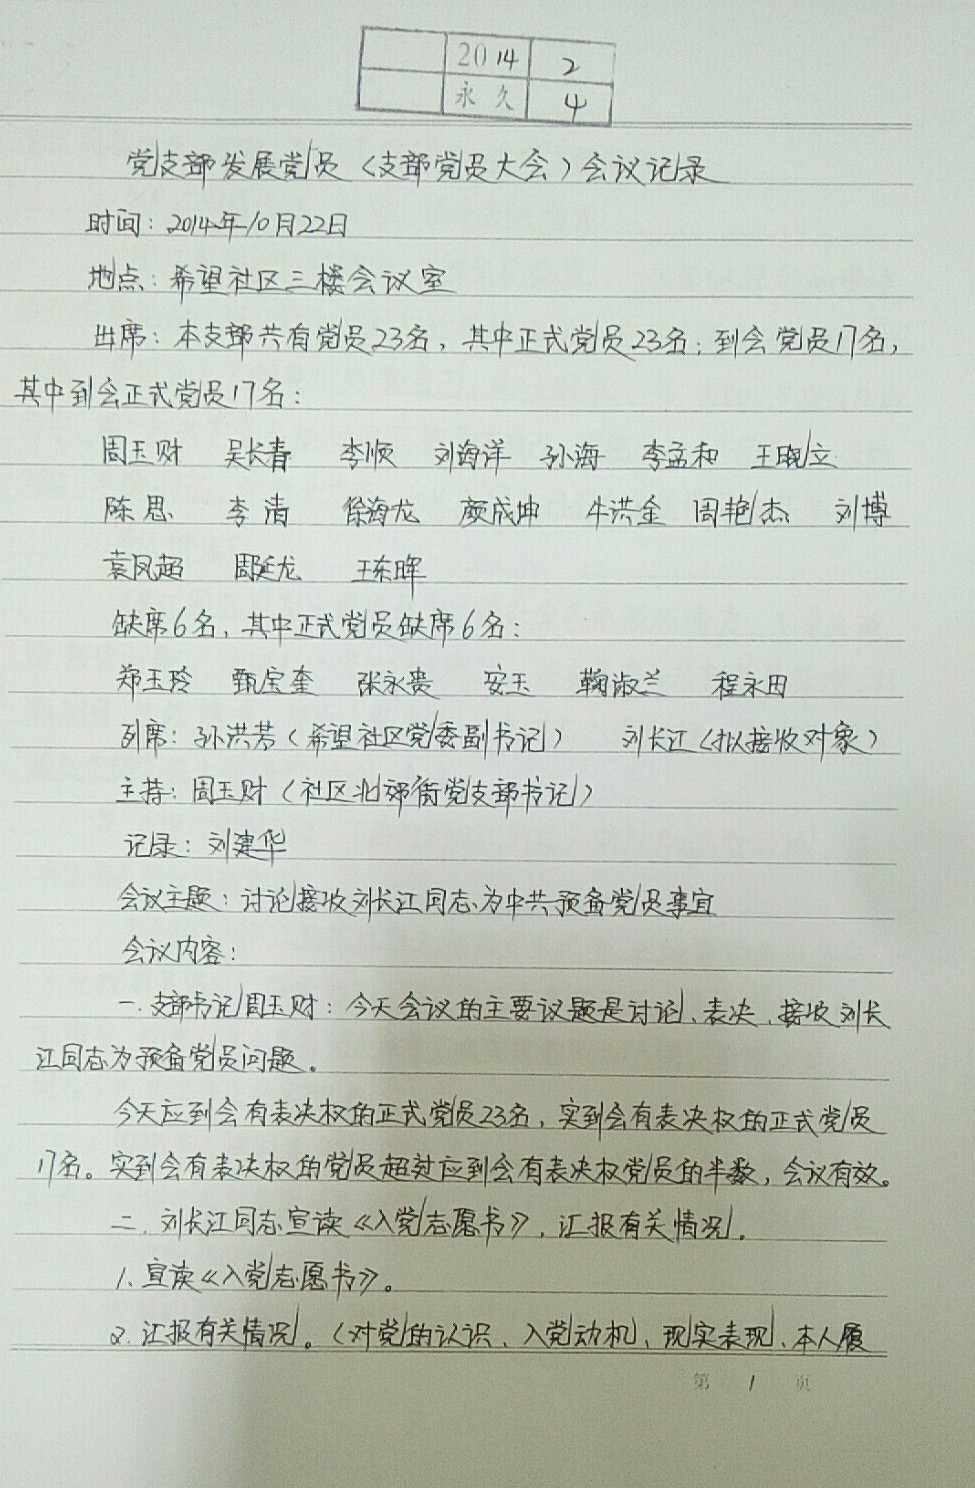 2014 2
永久 4
党支部发展党员（支部党员大会）会议记录
时间：2014年10月22日
地点：希望社区三楼会议室
出席：本支部共有党员23名，其中正式党员23名；到会党员17名，
其中到会正式党员17名：
周玉财 吴长春 李顺 刘海洋 孙海 李孟和 王晓立
陈思 李清 徐海龙 颜成坤 牛洪金 周艳杰 刘博
袁凤超 周延龙 王东晖
缺席6名，其中正式党员缺席6名：
郑玉玲 甄宝奎 张永贵 安玉 鞠淑兰 程永田
列席：孙洪芳（希望社区党委副书记） 刘长江（拟接收对象）
主持：周玉财（社区北郊街党支部书记）
记录：刘建华
会议主题：讨论接收刘长江同志为中共预备党员事宜
会议内容：
一.支部书记周玉财：今天会议的主要议题是讨论、表决、接收刘长
江同志为预备党员问题。
今天应到会有表决权的正式党员23名，实到会有表决权的正式党员
17名。实到会有表决权的党员超过应到会有表决权党员的半数，会议有效。
二.刘长江同志宣读《入党志愿书》，汇报有关情况。
1.宣读《入党志愿书》。
2.汇报有关情况。（对党的认识、入党动机、现实表现、本人履
第 1 页